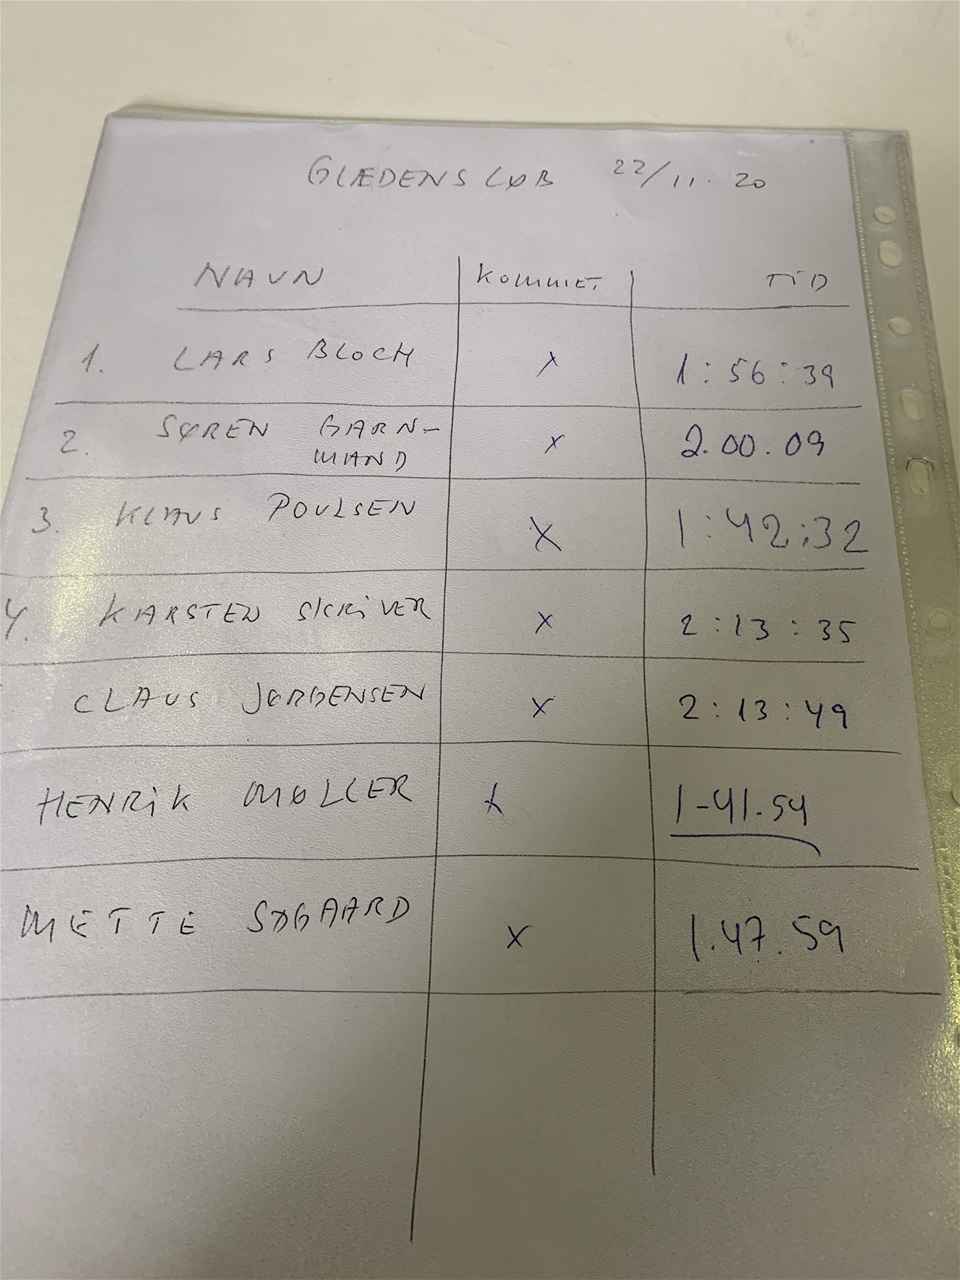 GLÆDENSLØB 22/11.20
NAVN KOMMET TID
1. LARS BLOCH X 1:56:39
2. SØREN GARN-
MAND X 2.00.09
3. KLAUS POULSEN X 1:42:32
4. KARSTEN SKRIVER X 2:13:35
CLAUS JØRGENSEN X 2:13:49
HENRIK MØLLER X 1-41.54
METTE SØGAARD X 1.47.59